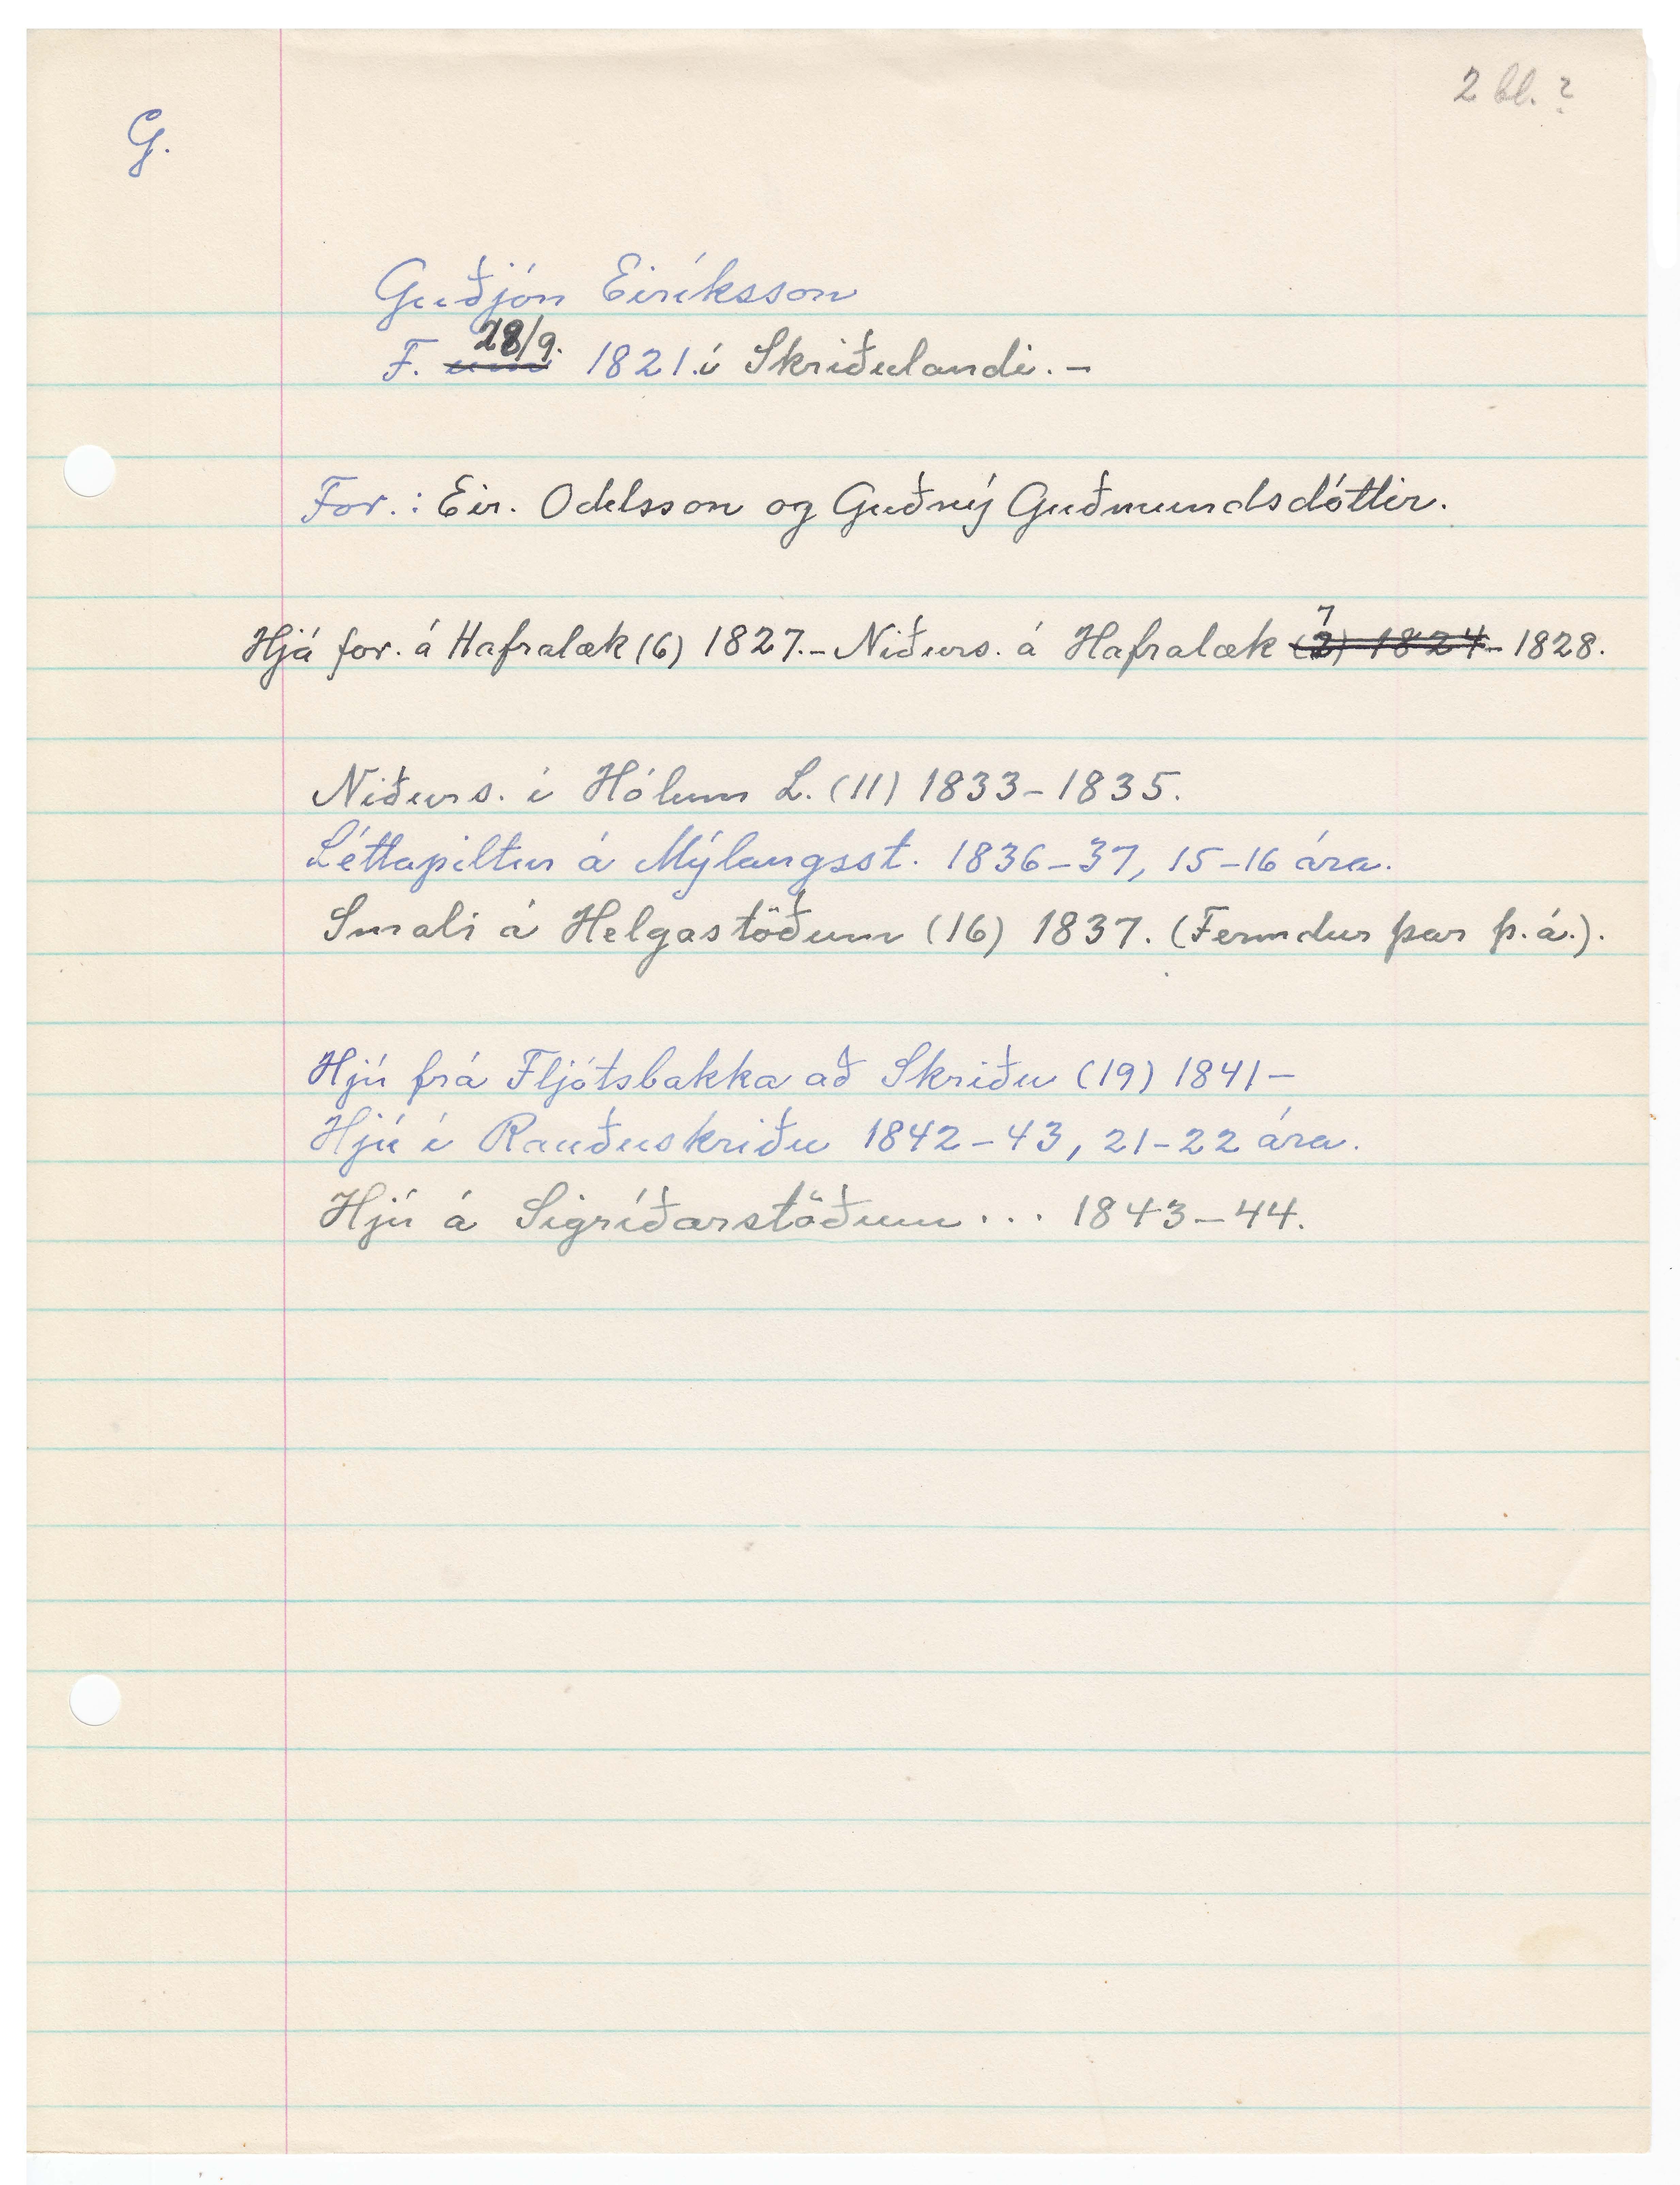 2 bl. ?
G.
Guðjón Eiríksson
F. um 28/9. 1821.í Skriðulandi. –
For.: Eir. Oddsson og Guðný Guðmundsdóttir.
Hjá for. á Hafralæk (6) 1827.– Niðurs. á Hafralæk (2) 7 1824– 1828.
Niðurs. í Hólum L. (11) 1833–1835.
Léttapiltur á Mýlaugsst. 1836–37, 15–16 ára.
Smali á Helgastöðum (16) 1837. (Fermdur þar þ.á.).
Hjú frá Fljótsbakka að Skriðu (19) 1841–
Hjú í Rauðuskriðu 1842–43, 21–22 ára.
Hjú á Sigríðarstöðum . . . 1843–44.